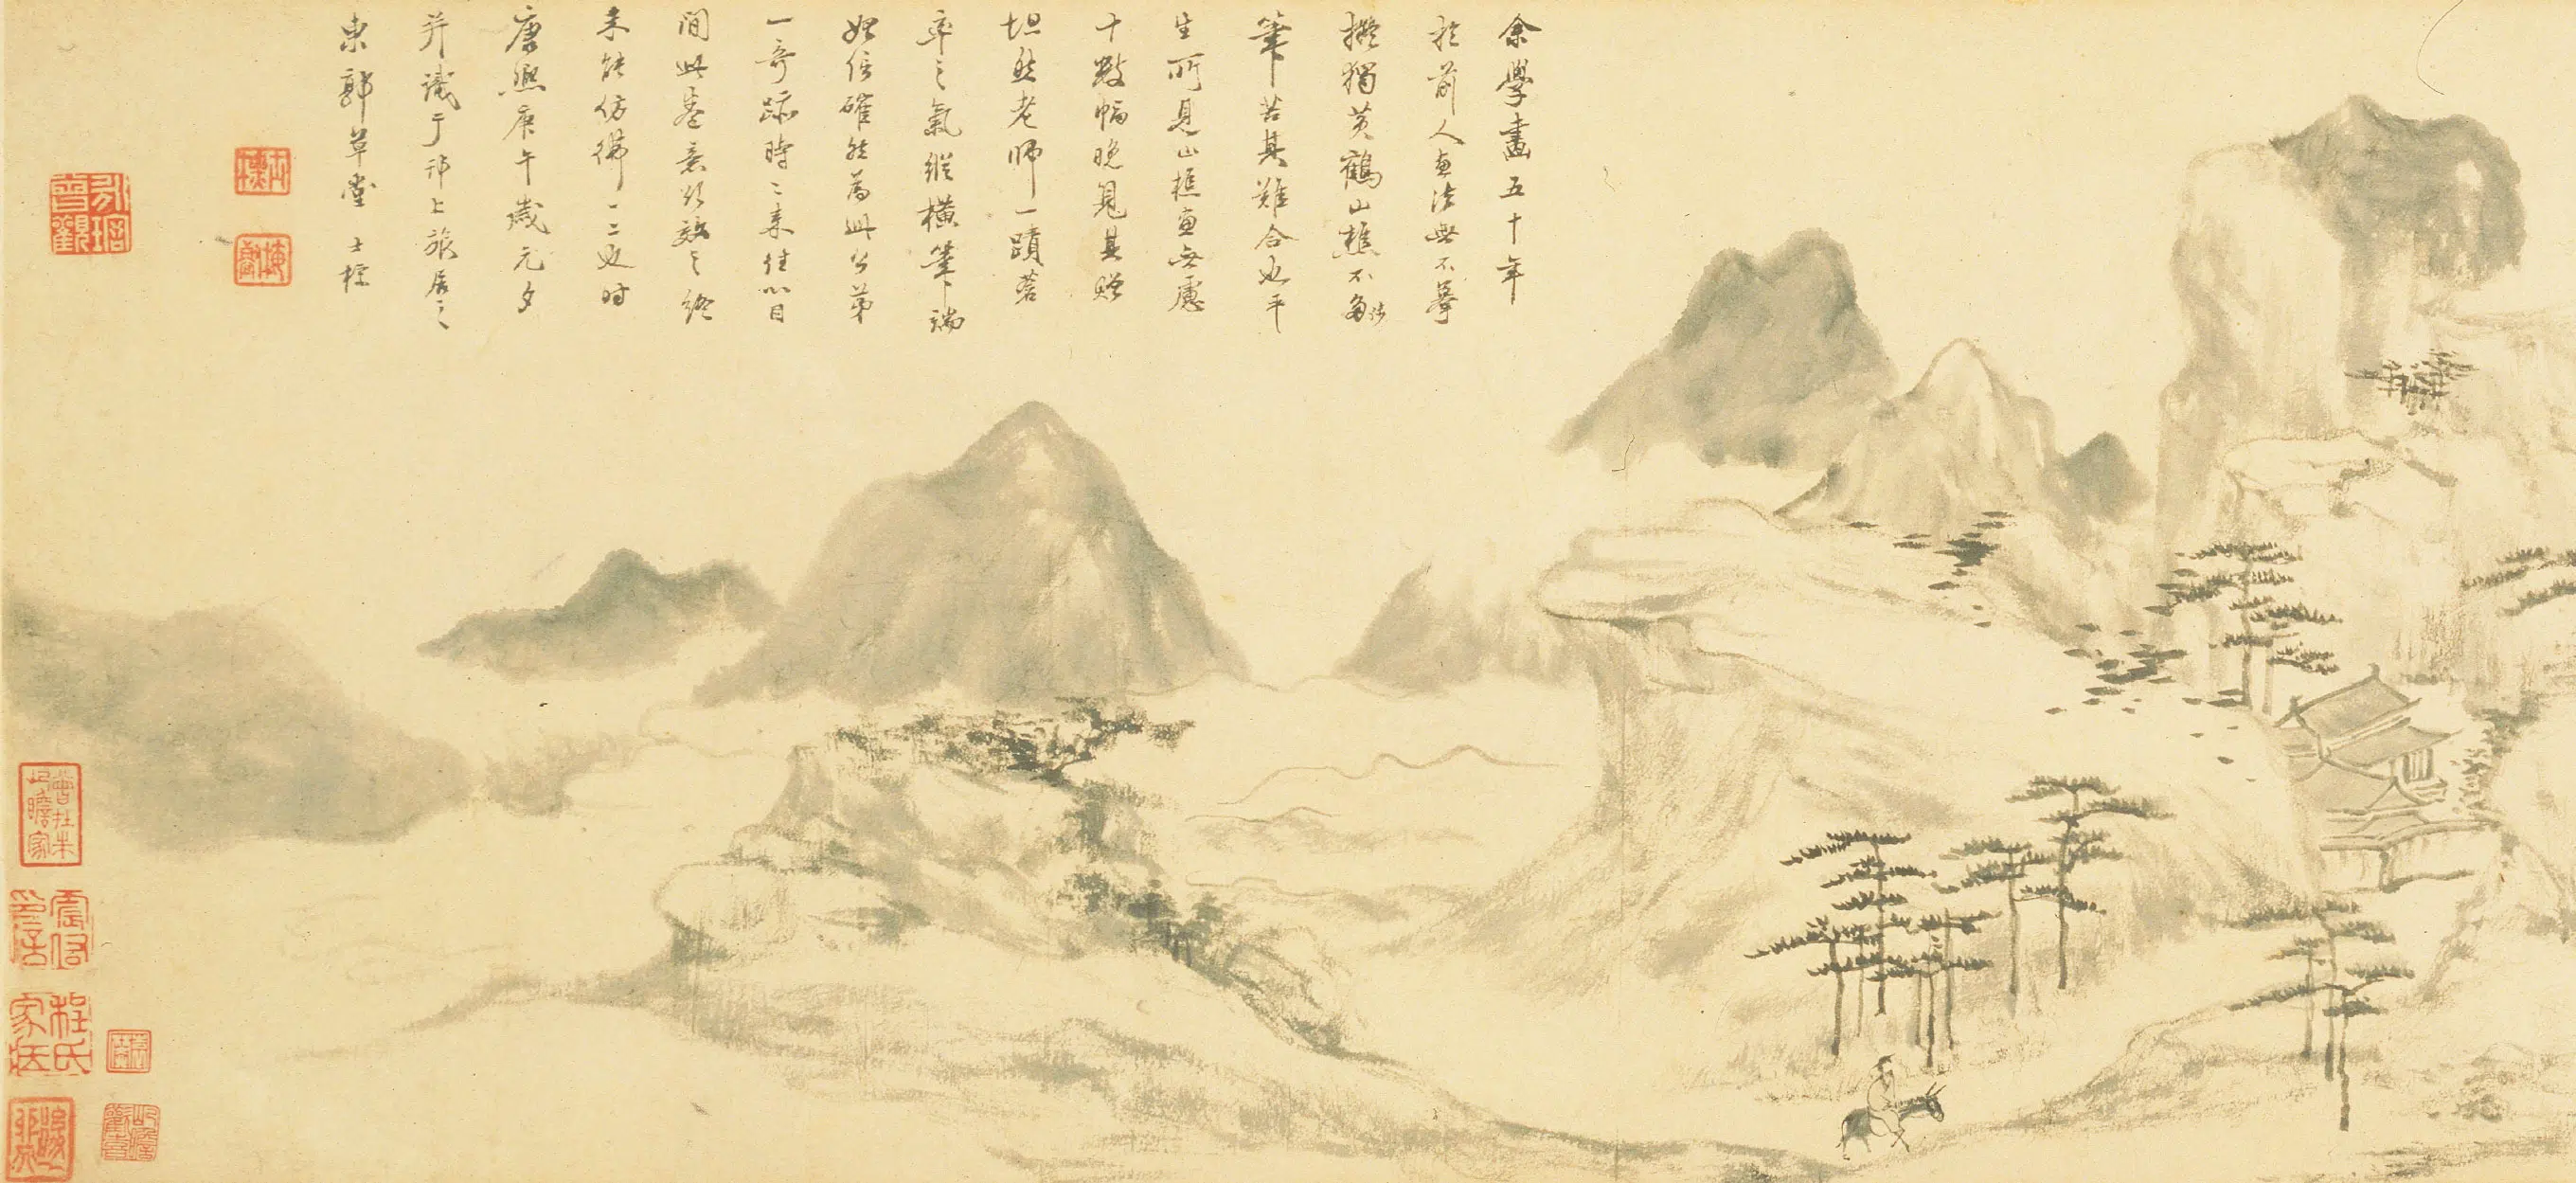 余學畫五十年
於前人畫法無不摹
擬獨黃鶴山樵不多
筆苦其難合也平
生所見山樵畫無慮
十數幅晚見其贈
坦然老師一蹟蒼
率之氣縱橫筆端
始信確然為此公第
一奇蹟時時來往心目
間此卷意欲效之終
未能仿彿一二也時
康熙庚午歲元夕
并識于邗上旅居之
東郭草堂 士標
程氏家藏